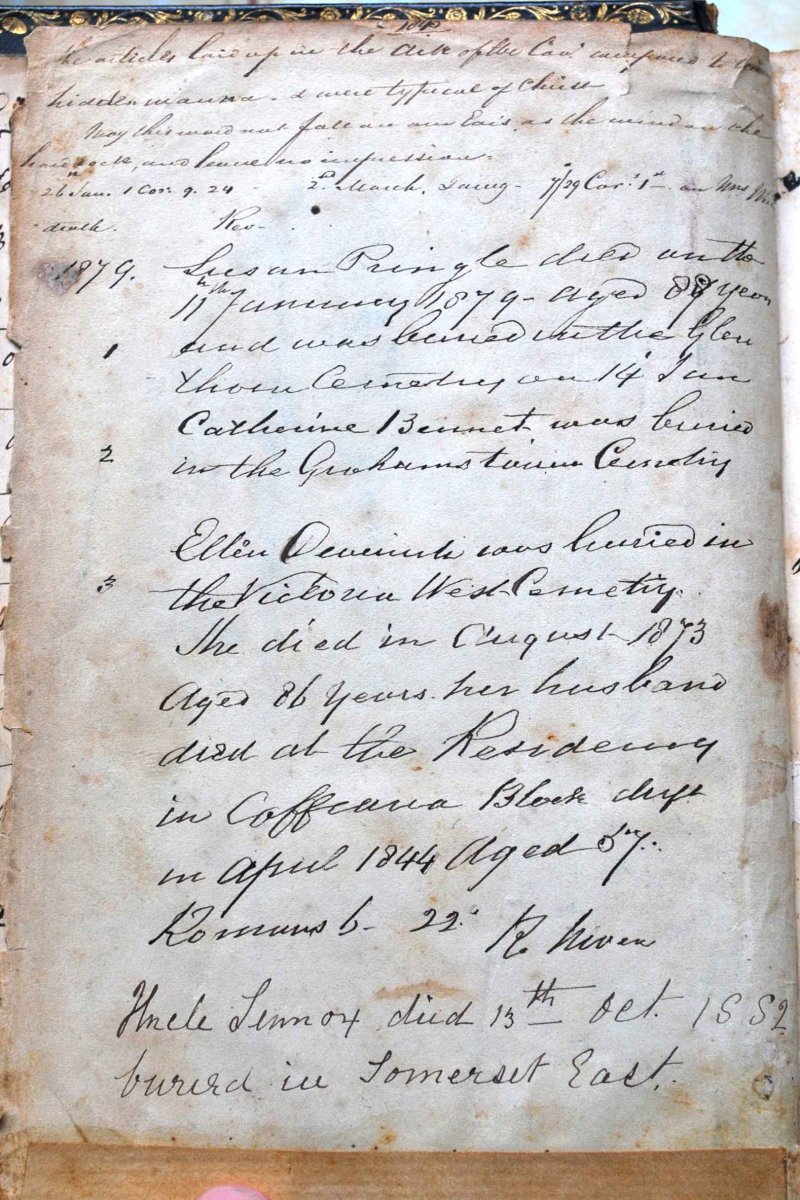 the articles laid up in the Ark of the Cov compared to
hidden manna - & were typical of Christ
May this word not fall on our Ears as the wind on the
hard rock, and leave no impression.
26th Jan. 1 Cor. 9. 24 - 2nd March. 1st on Mrs
death. Rev-
1879. Susan Pringle died on the
11th January 1879 - aged 88 years
1 and was buried in the Glen
thorn Cemetry on 14 Jan
Catherine Bennet was buried
2 in the Grahamstown Cemetry
Ellen was buried in
3 the Victoria West Cemetry.
She died in August 1873
Aged 86 Years her husband
died at the Residency
in Block drift
in April 1844 Aged 57.
Romans 6 - 22. R
Uncle Lennox died 13th Oct. 1882
burerd in Somerset East.